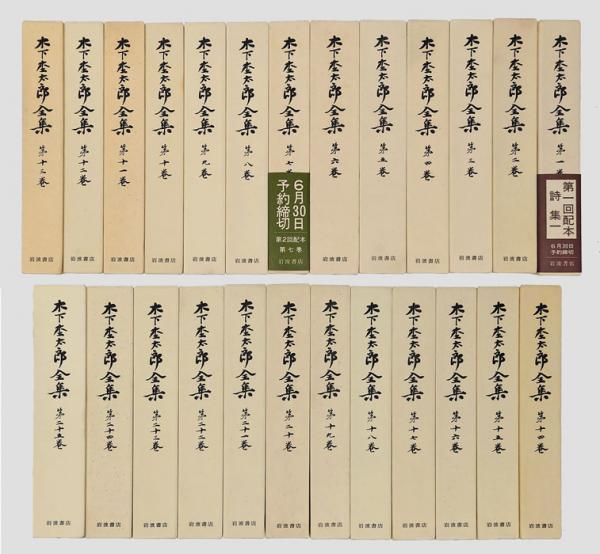 木下杢太郎全集 第一巻
第一回配本
詩集一
6月30日
予約締切
岩波書店
木下杢太郎全集 第二巻
岩波書店
木下杢太郎全集 第三巻
岩波書店
木下杢太郎全集 第四巻
岩波書店
木下杢太郎全集 第五巻
岩波書店
木下杢太郎全集 第六巻
岩波書店
木下杢太郎全集 第七
6月30日
予約締切
第2回配本
第七巻
岩波書店
木下杢太郎全集 第八巻
岩波書店
木下杢太郎全集 第九巻
岩波書店
木下杢太郎全集 第十巻
岩波書店
木下杢太郎全集 第十一巻
岩波書店
木下杢太郎全集 第十二巻
岩波書店
木下杢太郎全集 第十三巻
岩波書店
木下杢太郎全集 第十四巻
岩波書店
木下杢太郎全集 第十五巻
岩波書店
木下杢太郎全集 第十六巻
岩波書店
木下杢太郎全集 第十七巻
岩波書店
木下杢太郎全集 第十八巻
岩波書店
木下杢太郎全集 第十九巻
岩波書店
木下杢太郎全集 第二十巻
岩波書店
木下杢太郎全集 第二十一巻
岩波書店
木下杢太郎全集 第二十二巻
岩波書店
木下杢太郎全集 第二十三巻
岩波書店
木下杢太郎全集 第二十四巻
岩波書店
木下杢太郎全集 第二十五巻
岩波書店